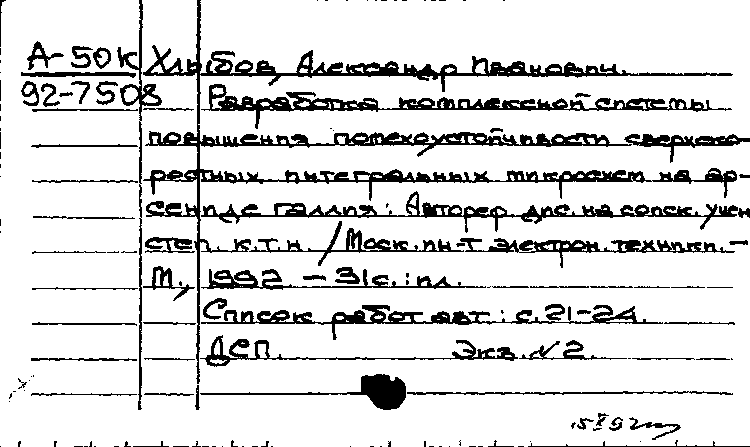 А-50к Хлыбов, Александр Иванович.
92-7508 Разработка комплексной системы
повышения помехоустойчивости сверхско-
ростных интегральных микросхем на ар-
сениде галлия: Автореф. дис. на соиск. учен.
степ. к.т.н. / Моск. ин-т электрон. техники. –
М., 1992. – 31 с.: ил.
Список работ авт.: с. 21-24.
ДСП. Экз. N 2.